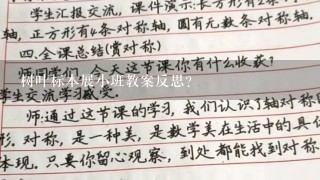 学生汇报交流，课件演示：长方形有2条
轴，正方形有4条对称轴，圆有无数条对称轴.
四.全课总结(赏对称)
今天这节课你有什么收获？
树叶标本展小班教案反思？
学生交流学习
师：通过这节课的学习，我们认识了轴对称
形.对称，是一种美，是数学美在生活中的具
体现.只要你留心观察，到处都能找到对称